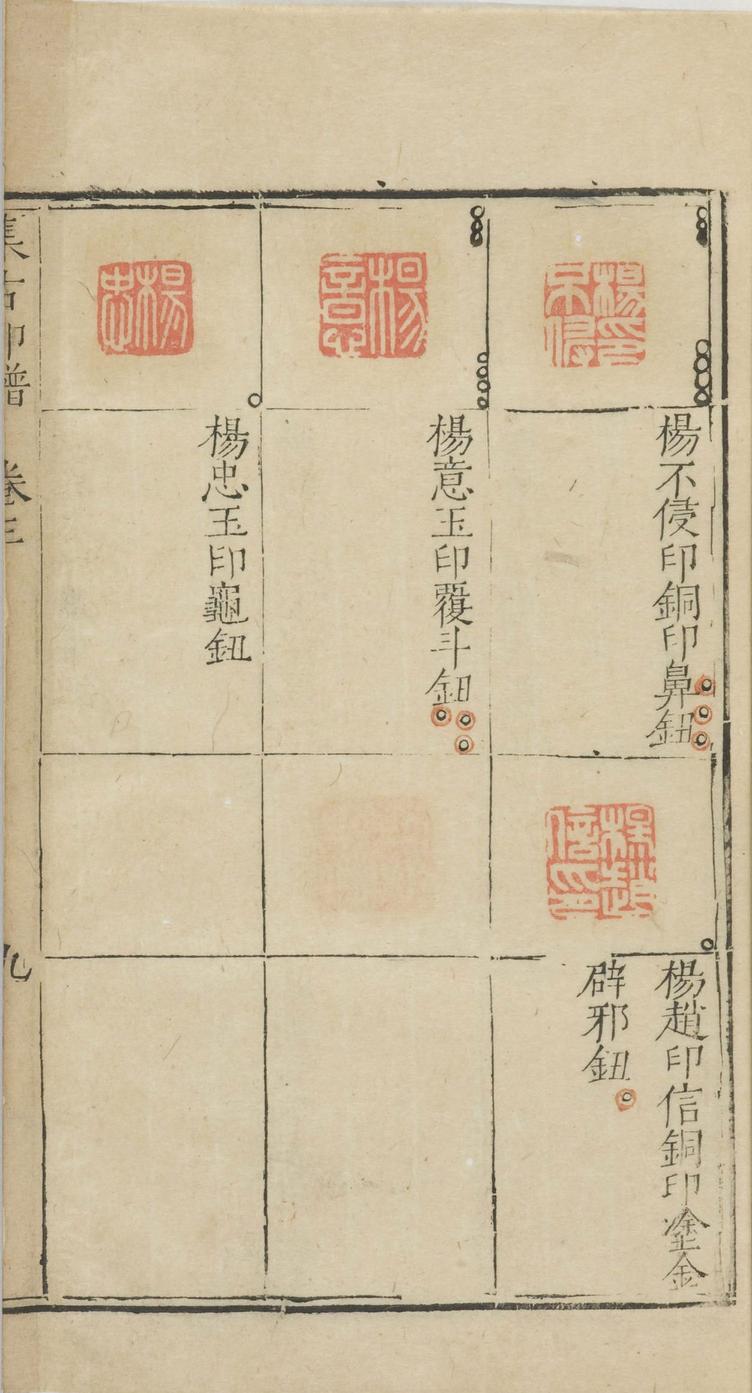 楊不侵印
楊不侵印銅印鼻鈕
楊意
楊意玉印覆斗鈕
楊忠
楊忠玉印龜鈕
楊趙印信
楊趙印信銅印塗金
辟邪鈕
集古印譜 卷三
九